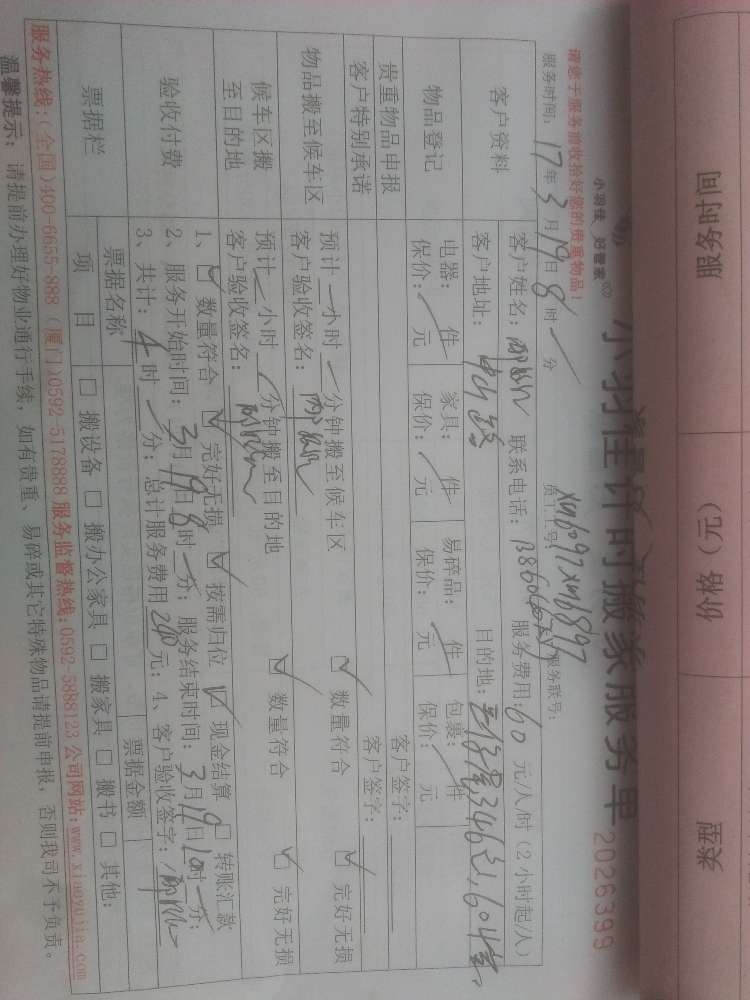 服务时间
价格（元）
类型
小羽佳计时搬家服务单
2026399
小羽佳 好管家
请您于服务前收拾好您的贵重物品！
服务时间：17年3月19日8时 分
员工号：xm6097xm6897
服务联号：
客户资料
客户姓名： 联系电话： 服务费用：60元/人/时（2小时起/人）
客户地址： 目的地：
物品登记
电器： 件 家具： 件 易碎品： 件 包裹： 件
保价： 元 保价： 元 保价： 元 保价： 元
贵重物品申报
客户特别承诺
客户签字：
客户签字：
物品搬至候车区
预计 小时 分钟搬至候车区
客户验收签名：
数量符合 完好无损
候车区搬至目的地
预计 小时 分钟搬至目的地
客户验收签名：
数量符合 完好无损
验收付费
1、 数量符合 完好无损 按需归位 现金结算 转账汇款
2、服务开始时间：3月19日8时 分；服务结束时间：3月19日10时 分；
3、共计：4时 分；总计服务费用240元；4、客户验收签字：
票据栏
票据名称 票据金额
项 目 搬设备 搬办公家具 搬家具 搬书 其他：
服务热线：（全国）400-6655-888（厦门）0592-5178888 服务监督热线：0592-5888133 公司网站：www.xiaoyujia.com
温馨提示：请提前办理好物业通行手续，如有贵重、易碎或其它特殊物品请提前申报，否则我司不予负责。